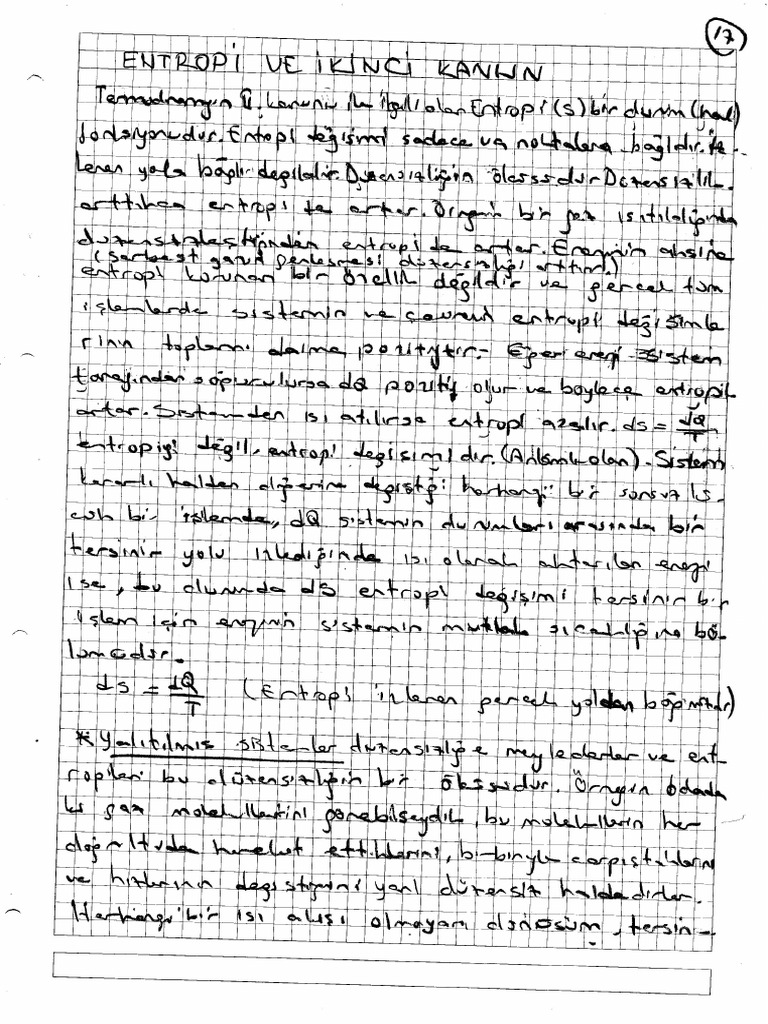 17
ENTROPİ VE İKİNCİ KANUN
Termodinamiğin II. kanunu ile ilgili olan Entropi (s) bir durum (hal)
fonksiyonudur. Entropi değişimi sadece uç noktalara bağlıdır. İz-
lenen yola bağlı değildir. Düzensizliğin ölçüsüdür Düzensizlik
arttıkca entropi de artar. Örneğin bir gaz ısıtıldığında
düzensizleştiğinden entropi de artar. Enerjinin aksine
(serbest gazın genleşmesi düzensizliği arttırır.)
entropi korunan bir özellik değildir ve gerçek tüm
işlemlerde sistemin ve çevrenin entropi değişimle
rinin toplamı daima pozitiftir. Eğer enerji sistem
tarafından soğurulursa dQ pozitif olur ve böylece entropi
artar. Sistemden ısı atılırsa entropi azalır. ds = dQ/T
entropiyi değil, entropi değişimidir. (Anlamlı olan). Sistem
kararlı halden diğerine değiştiği herhangi bir sonsuz kü-
çük bir işlemde, dQ sistemin durumları arasında bir
tersinir yolu izlediğinde ısı olarak aktarılan enerji
ise, bu durumda dS entropi değişimi tersinir bir
işlem için enerjinin sistemin mutlak sıcaklığına bö-
lümüdür.
ds = dQ/T (Entropi izlenen gerçek yoldan bağımsızdır)
* Yalıtılmış sistemler düzensizliğe meylederler ve ent-
ropileri bu düzensizliğin bir ölçüsüdür. Örneğin odada
ki gaz moleküllerini görebilseydik, bu moleküllerin her
doğrultuda hareket ettiklerini, birbiriyle çarpıştıklarını
ve hızlarının değiştiğini yani düzensiz haldedirler.
Herhangi bir ısı alışı olmayan dönüşüm, tersin-